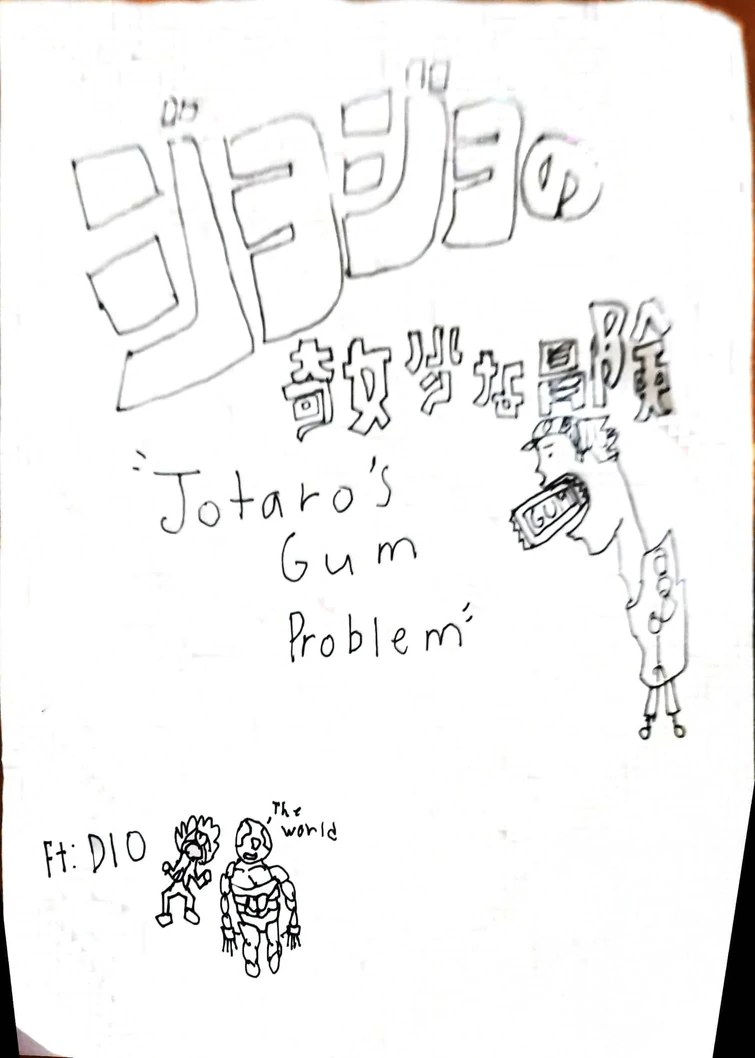 ジョジョの
奇妙な冒険
"Jotaro's
Gum
Problem"
GUM
Ft: DIO
The
World